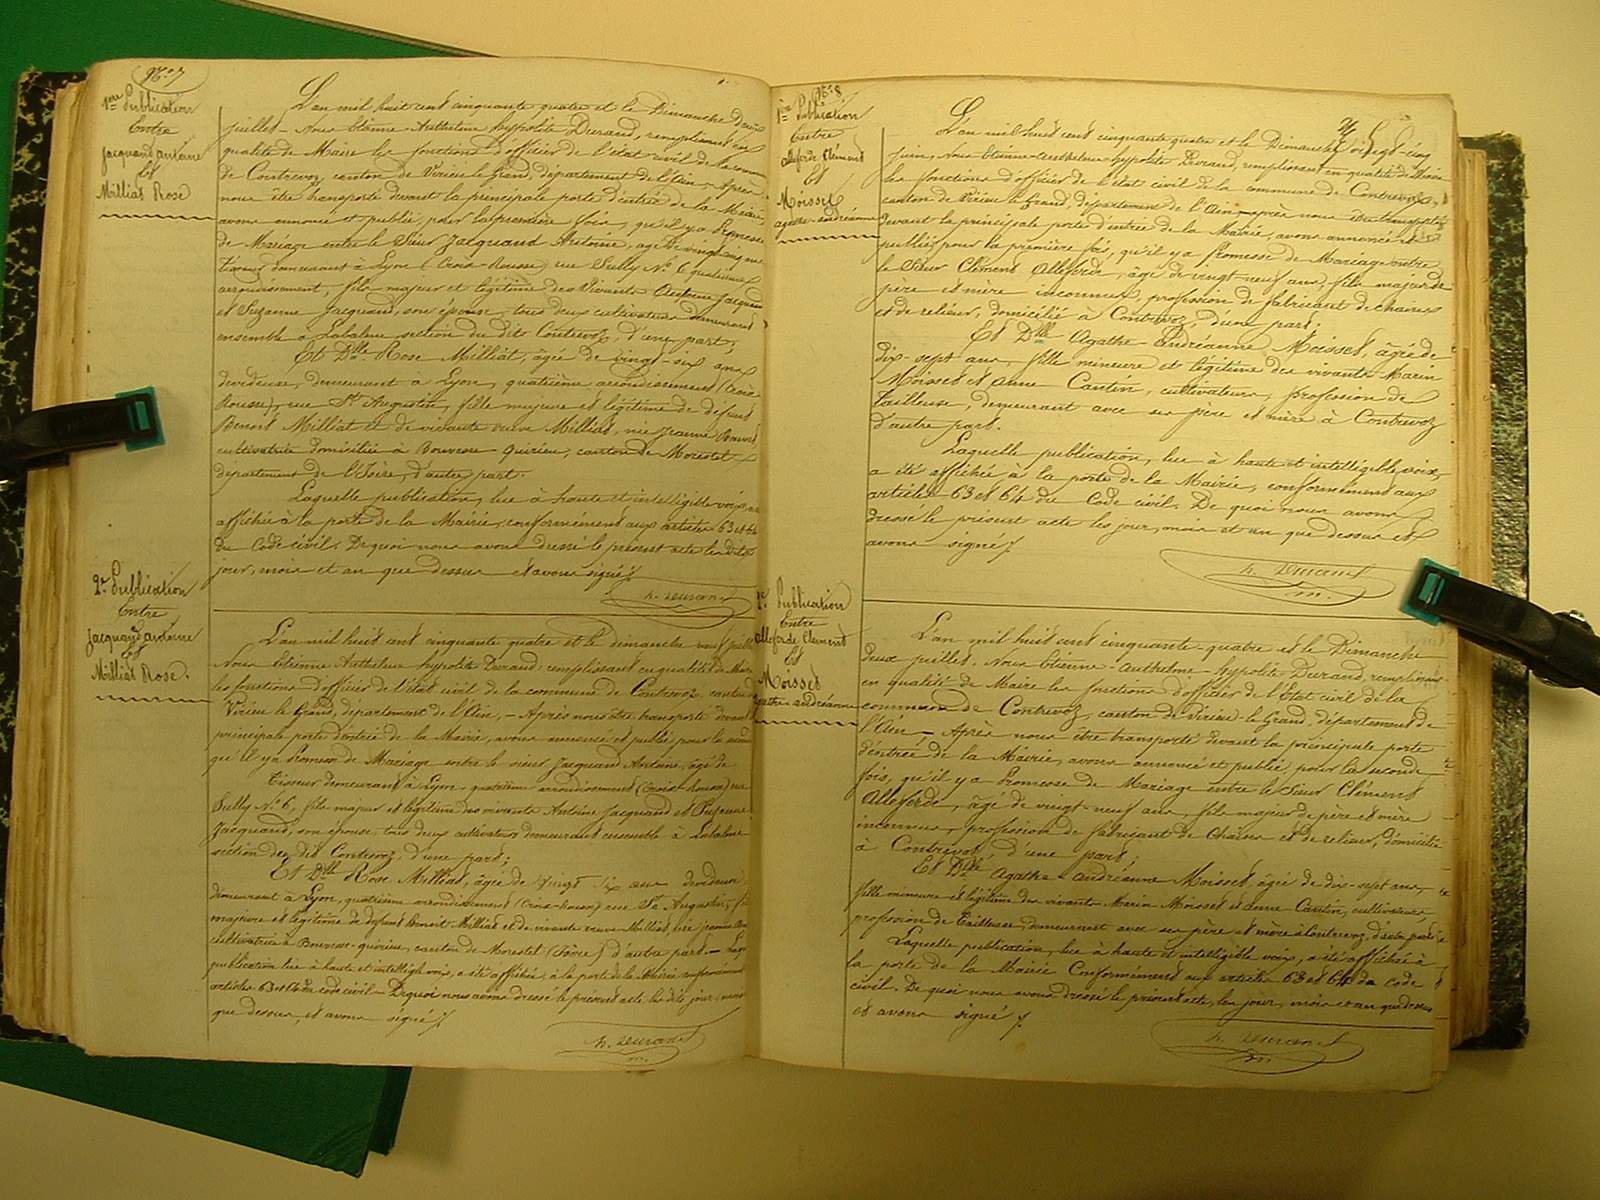 N.° 7
1re Publication
Entre
Jacquand Antoine
Et
Milliat Rose
L'an mil huit cent cinquante quatre et le Dimanche deux
juillet - Nous Etienne Anthelme hyppolite Durand, remplissant en
qualité de Maire les fonctions d'officier de l'état civil de la commune
de Contrevoz, canton de Virieu le Grand, département de l'Ain - Après
nous être transporté devant la principale porte d'entrée de la Mairie,
avons annoncé et publié, pour la première fois, qu'il y a Promesse
de Mariage entre le Sieur Jacquand Antoine, âgé de vingt cinq ans
tisseur demeurant à Lyon (Croix-Rousse) rue Sully N.° 6 quatrième
arrondissement, fils majeur et légitime des vivants Antoine Jacquand
et Suzanne Jacquand, son épouse, tous deux cultivateurs demeurant
ensemble à Labalme section du dit Contrevoz, d'une part;
Et Dlle Rose Milliat, âgée de vingt-six ans
dévideuse, demeurant à Lyon, quatrième arrondissement (Croix-
Rousse), rue St Augustin, fille majeure et légitime de défunt
Benoit Milliat et de vivante veuve Milliat, née Jeanne
cultivatrice domiciliée à Bouvesse-Quirieu, canton de Morestel
département de l'Isère, d'autre part.
Laquelle publication, lue à haute et intelligible voix, a été
affichée à la porte de la Mairie, conformément aux articles 63 et 64
du Code civil. De quoi nous avons dressé le présent acte les dits
jour, mois et an que dessus et avons signé.
h. Durand
2e Publication
Entre
Jacquand Antoine
Et
Milliat Rose.
L'an mil huit cent cinquante quatre et le dimanche neuf juillet
Nous Etienne Anthelme hyppolite Durand, remplissant en qualité de Maire
les fonctions d'officier de l'état civil de la commune de Contrevoz, canton de
Virieu le Grand, département de l'Ain, - Après nous être transporté devant la
principale porte d'entrée de la Mairie, avons annoncé et publié pour la seconde
qu'il y a Promesse de Mariage entre le sieur Jacquand Antoine, âgé de
Tisseur demeurant à Lyon quatrième arrondissement (Croix-Rousse) rue
Sully N.° 6, fils majeur et légitime des vivants Antoine Jacquand et Suzanne
Jacquand, son épouse, tous deux cultivateurs demeurant ensemble à Labalme
section du dit Contrevoz, d'une part;
Et Dlle Rose Milliat, âgée de vingt six ans dévideuse,
demeurant à Lyon, quatrième arrondissement (Croix-Rousse) rue St Augustin, fille
majeure et légitime de défunt Benoit Milliat et de vivante veuve Milliat, née Jeanne
cultivatrice à Bouvesse-quirieu, canton de Morestel (Isère) d'autre part. - Laquelle
publication lue à haute et intelligible voix, a été affichée, à la porte de la Mairie conformément
articles 63 et 64 du code civil. - De quoi nous avons dressé le présent acte les dits jour, mois
que dessus, et avons signé.
h. Durand
N.° 8
1re Publication
Entre
Alleforde Clément
Et
Moisset
agathe-andréanne
L'an mil huit cent cinquante quatre et le Dimanche vingt-cinq
juin, Nous Etienne-Anthelme hyppolite Durand, remplissant en qualité de Maire
les fonctions d'officier de l'état civil de la commune de Contrevoz,
canton de Virieu le Grand, département de l'Ain - après nous être transporté
devant la principale porte d'entrée de la Mairie, avons annoncé et
publié pour la première fois, qu'il y a Promesse de Mariage entre
le Sieur Clément Alleforde, âgé de vingt neuf ans, fils majeur de
père et mère inconnus, profession de fabricant de chaises
et de relieur, domicilié à Contrevoz, d'une part;
Et Dlle Agathe Andréanne Moisset, âgée de
dix-sept ans, fille mineure et légitime des vivants Marin
Moisset et Anne Cantin, cultivateurs, profession de
Tailleuse, demeurant avec ses père et mère à Contrevoz
d'autre part.
Laquelle publication, lue à haute et intelligible voix,
a été affichée à la porte de la Mairie, conformément aux
articles 63 et 64 du Code civil. De quoi nous avons
dressé le présent acte les jour, mois et an que dessus et
avons signé.
h. Durand
2e Publication
Entre
Alleforde Clément
Et
Moisset
agathe-andréanne
L'an mil huit cent cinquante-quatre et le Dimanche
deux juillet. Nous Etienne-Anthelme hyppolite Durand, remplissant
en qualité de Maire les fonctions d'officier de l'Etat civil de la
commune de Contrevoz, canton de Virieu-le-Grand, département de
l'Ain - Après nous être transporté devant la principale porte
d'entrée de la Mairie, avons annoncé et publié pour la seconde
fois, qu'il y a Promesse de Mariage entre le Sieur Clément
Alleforde, âgé de vingt-neuf ans, fils majeur de père et mère
inconnus, profession de fabricant de chaises et de relieur, domicilié
à Contrevoz, d'une part;
Et Dlle Agathe Andréanne Moisset, âgée de dix-sept ans,
fille mineure et légitime des vivants Marin Moisset et anne Cantin, cultivateurs,
profession de Tailleuse, demeurant avec ses père et mère à Contrevoz, d'autre part.
Laquelle publication, lue à haute et intelligible voix, a été affichée à
la porte de la Mairie Conformément aux articles 63 et 64 du code
civil. De quoi nous avons dressé le présent acte, les jour, mois et an que dessus
et avons signé.
h. Durand